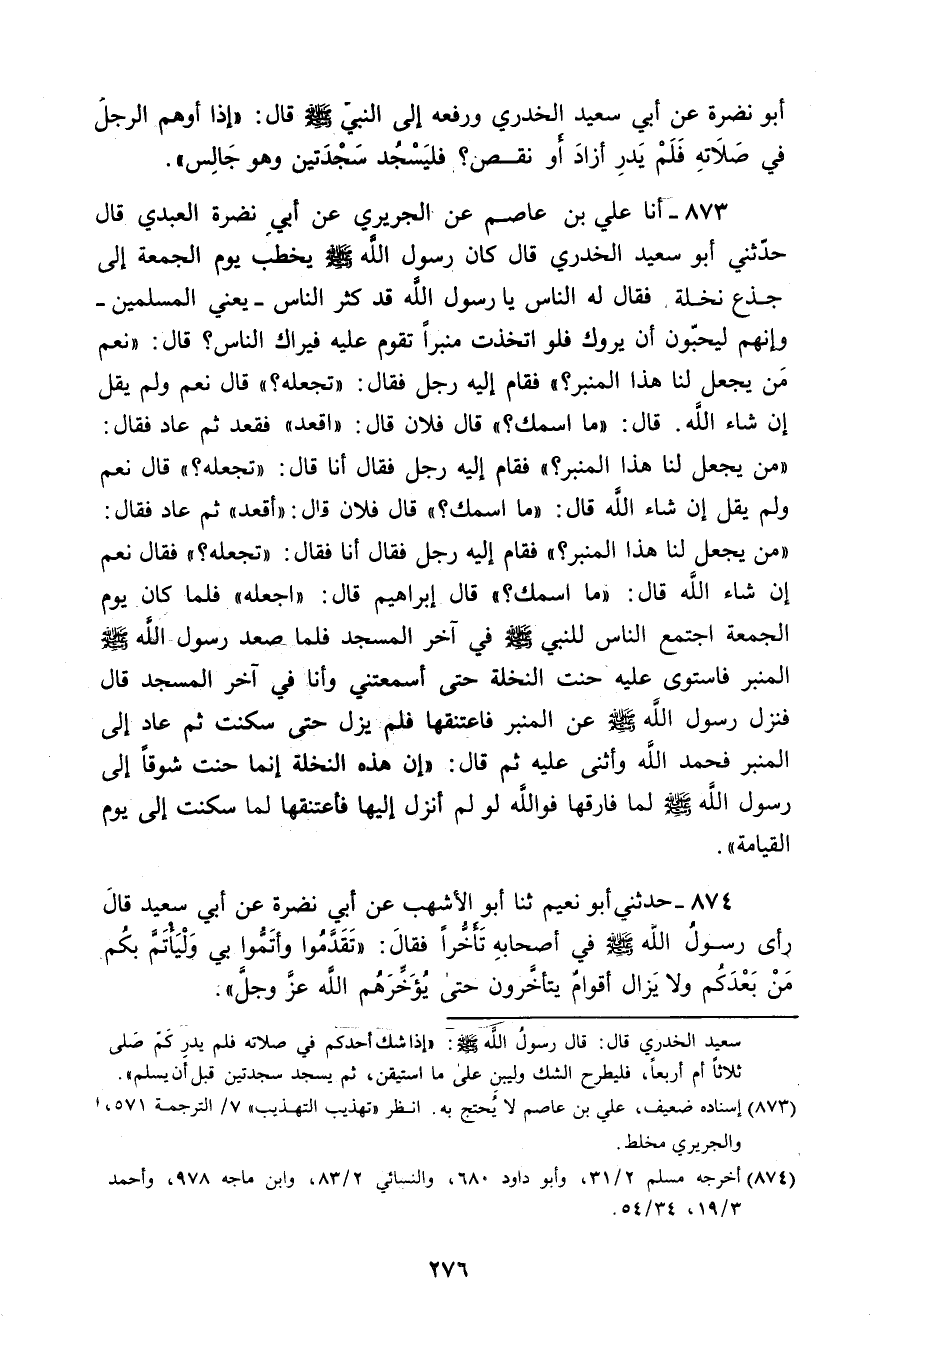 أبو نضرة عن أبي سعيد الخدري ورفعه إلى النبيّ ﷺ قال: «إذا أوهم الرجلُ
في صَلَاتهِ فَلَمْ يَدرِ أزادَ أَو نقـص؟ فليَسْجُد سَجْدَتين وهو جَالِس».
٨٧٣ ـ أنا علي بن عاصم عن الجريري عن أبي نضرة العبدي قال
حدّثني أبو سعيد الخدري قال كان رسول اللَّه ﷺ يخطب يوم الجمعة إلى
جـذع نخـلة فقال له الناس يا رسول اللَّه قد كثر الناس ـ يعني المسلمين ـ
وإنهم ليحبّون أن يروك فلو اتخذت منبراً تقوم عليه فيراك الناس؟ قال: «نعم
مَن يجعل لنا هذا المنبر؟» فقام إليه رجل فقال: «تجعله؟» قال نعم ولم يقل
إن شاء اللَّه. قال: «ما اسمك؟» قال فلان قال: «اقعد» فقعد ثم عاد فقال:
«من يجعل لنا هذا المنبر؟» فقام إليه رجل فقال أنا قال: «تجعله؟» قال نعم
ولم يقل إن شاء اللَّه قال: «ما اسمك؟» قال فلان قال: «أقعد» ثم عاد فقال:
«من يجعل لنا هذا المنبر؟» فقام إليه رجل فقال أنا فقال: «تجعله؟» فقال نعم
إن شاء اللَّه قال: «ما اسمك؟» قال إبراهيم قال: «اجعله» فلما كان يوم
الجمعة اجتمع الناس للنبي ﷺ في آخر المسجد فلما صعد رسول اللَّه ﷺ
المنبر فاستوى عليه حنت النخلة حتى أسمعتني وأنا في آخر المسجد قال
فنزل رسول اللَّه ﷺ عن المنبر فاعتنقها فلم يزل حتى سكنت ثم عاد إلى
المنبر فحمد اللَّه وأثنى عليه ثم قال: «إن هذه النخلة إنما حنت شوقاً إلى
رسول اللَّه ﷺ لما فارقها فواللَّه لو لم أنزل إليها فأعتنقها لما سكنت إلى يوم
القيامة».
٨٧٤ ـ حدثني أبو نعيم ثنا أبو الأشهب عن أبي نضرة عن أبي سعيد قالَ
رأى رسـولُ اللَّه ﷺ في أصحابهِ تَأَخُّراً فقالَ: «تَقَدَّمُوا وأتَمُّوا بي وَلْيَأْتَمَّ بكُم
مَنْ بَعْدَكُم ولا يَزال أقوامٌ يتأخَّرون حتىٰ يُؤَخِّرَهُم اللَّه عزَّ وجلَّ».
سعيد الخدري قال: قال رسولُ اللَّه ﷺ: «إذا شك أحدكم في صلاته فلم يدرِ كمّ صَلى
ثلاثاً أم أربعاً، فليطرح الشك وليبنِ علىٰ ما استيقن، ثم يسجد سجدتين قبل أن يسلم».
(٨٧٣) إسناده ضعيف، علي بن عاصم لا يُحتج به. انـظر «تهذيب التهذيب» ٧/ الترجمة ٥٧١،
والجريري مخلط.
(٨٧٤) أخرجه مسلم ٣١/٢، وأبو داود ٦٨٠، والنسائي ٨٣/٢، وابن ماجه ٩٧٨، وأحمد
١٩/٣، ٥٤/٣٤.
٢٧٦